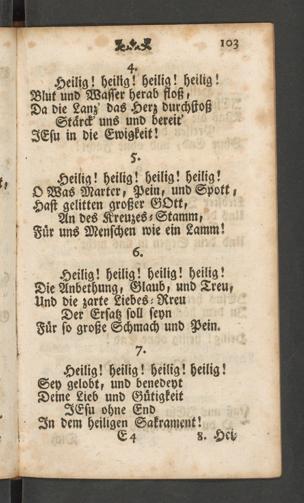 103
4.
Heilig! heilig! heilig! heilig!
Blut und Wasser herab floß,
Da die Lanz' das Herz durchstoß
Stärck' uns und bereit'
JEsu in die Ewigkeit!
5.
Heilig! heilig! heilig! heilig!
O Was Marter, Pein, und Spott,
Hast gelitten großer GOtt,
An des Kreuzes-Stamm,
Für uns Menschen wie ein Lamm!
6.
Heilig! heilig! heilig! heilig!
Die Anbethung, Glaub, und Treu,
Und die zarte Liebes-Rreu
Der Ersatz soll seyn
Für so große Schmach und Pein.
7.
Heilig! heilig! heilig! heilig!
Sey gelobt, und benedeyt
Deine Lieb und Gütigkeit
JEsu ohne End
In dem heiligen Sakrament!
E 4 8. Hei-